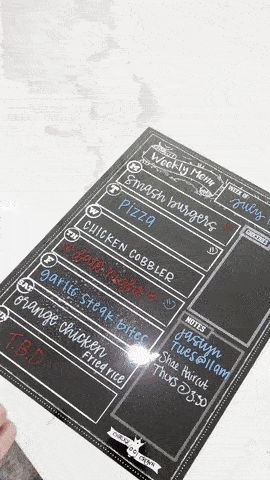 Weekly Menu
WEEK OF
July
M
Smash burgers
T
Pizza
W
CHICKEN COBBLER
TH
date night
F
garlic steak bites
SA
orange chicken
Fried rice
T.B.D
GROCERIES
NOTES
Jaslyn
Tues@11am
Shae Haircut
Thurs @3:30